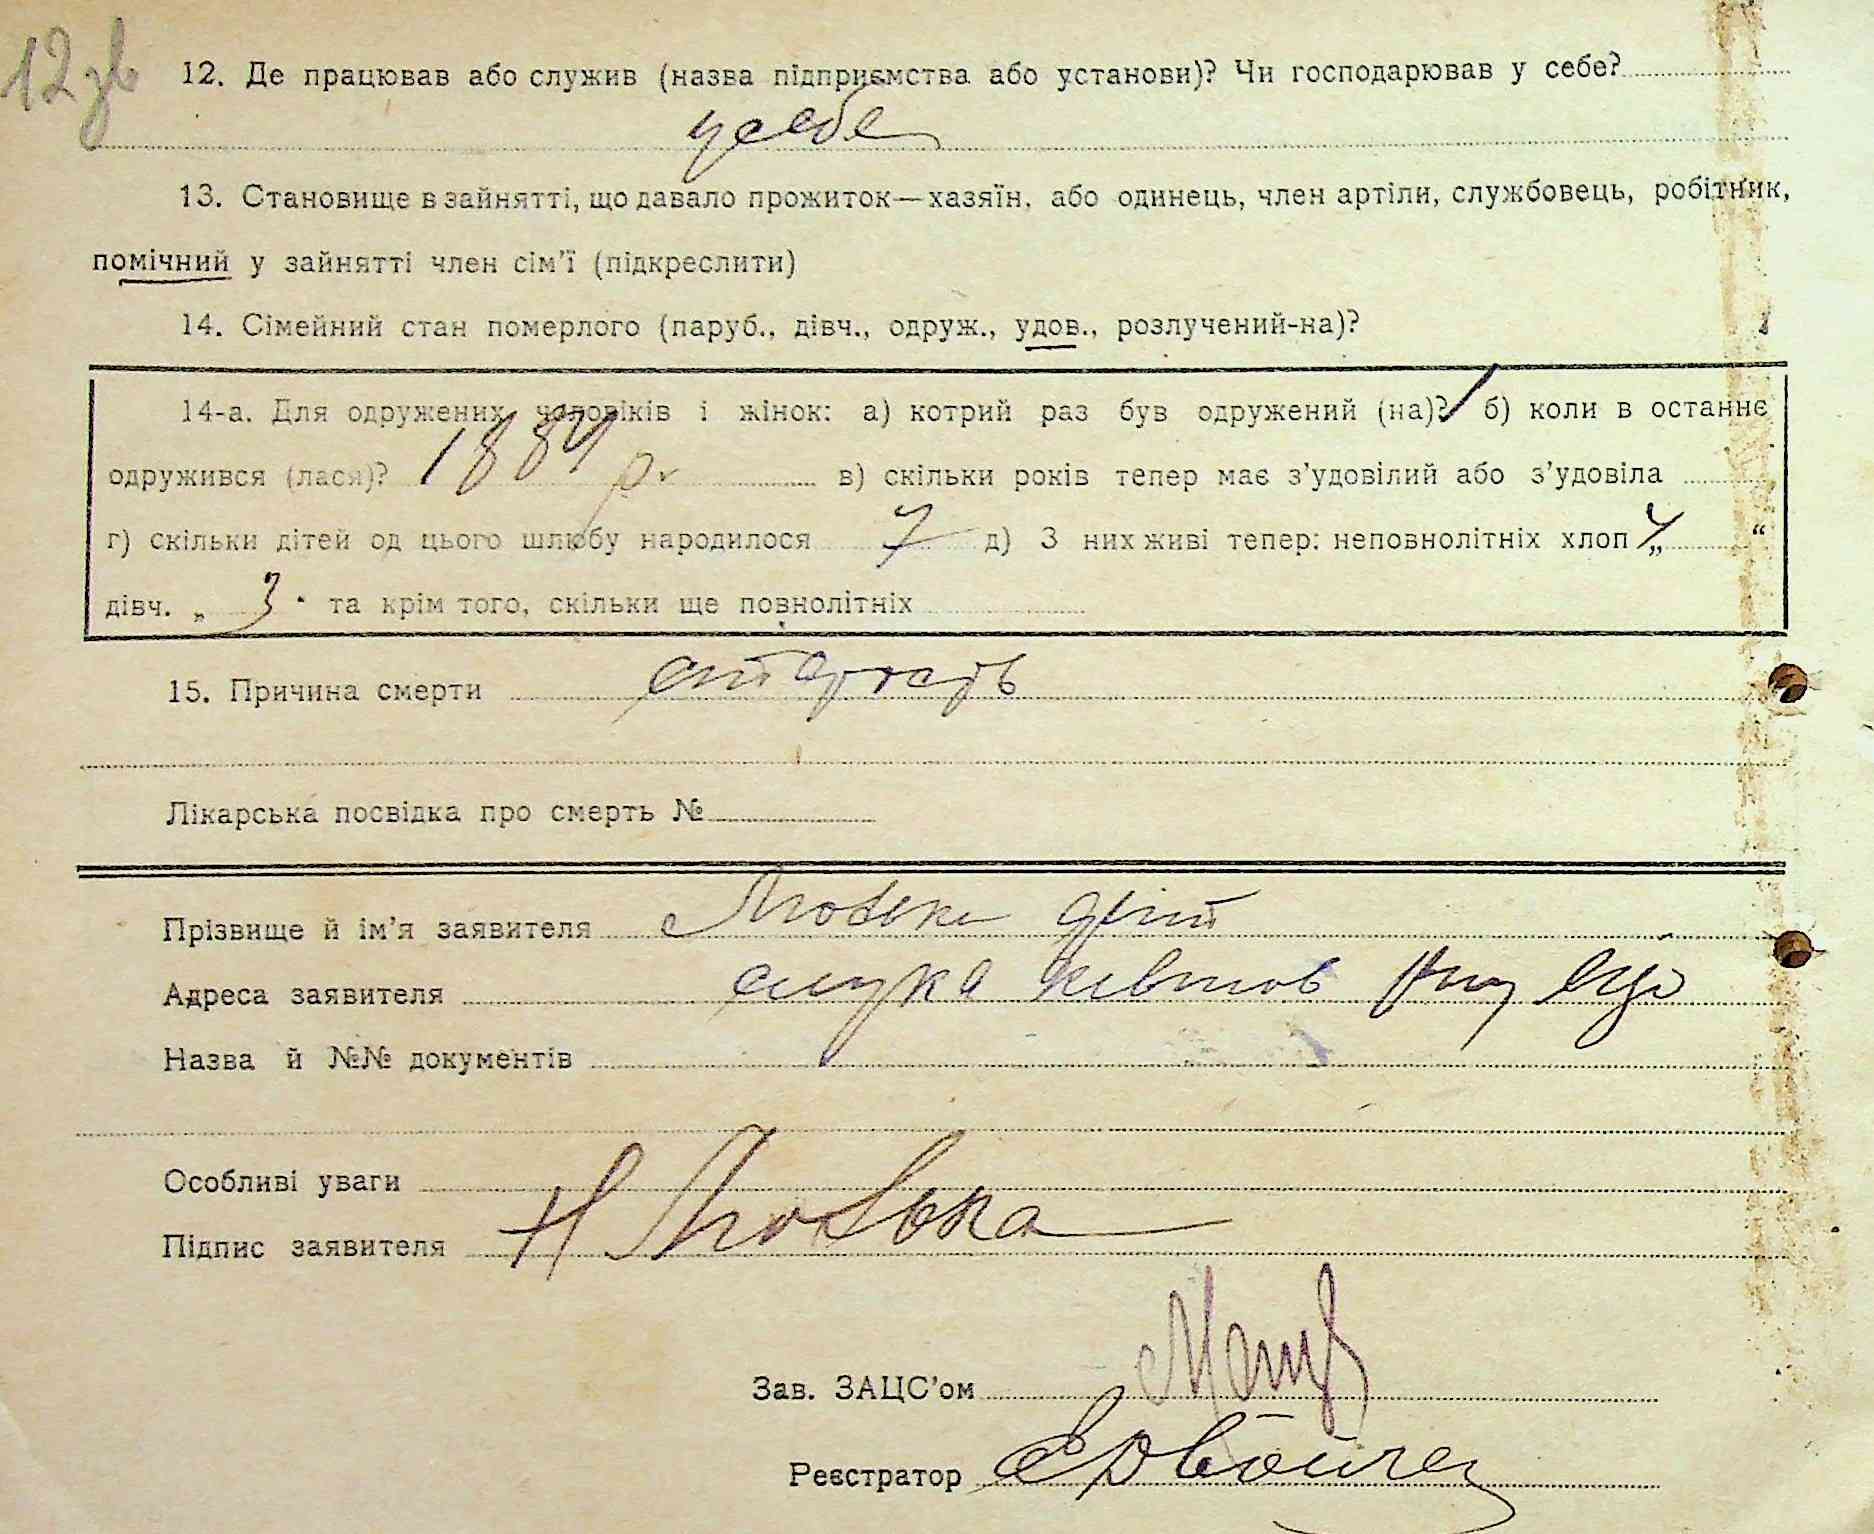 12зв
12. Де працював або служив (назва підприємства або установи)? Чи господарював у себе?
у себе
13. Становище в зайнятті, що давало прожиток—хазяїн, або одинець, член артіли, службовець, робітник,
помічний у зайнятті член сім'ї (підкреслити)
14. Сімейний стан померлого (паруб., дівч., одруж., удов., розлучений-на)?
14-а. Для одружених чоловіків і жінок: а) котрий раз був одружений (на)? 1 б) коли в останнє
одружився (лася)? 1884 р в) скільки років тепер має з'удовілий або з'удовіла
г) скільки дітей од цього шлюбу народилося 7 д) З них живі тепер: неповнолітніх хлоп „ 4 “
дівч. „ 3 " та крім того, скільки ще повнолітніх
15. Причина смерти старость
Лікарська посвідка про смерть №
Прізвище й ім'я заявителя
Адреса заявителя
Назва й №№ документів
Особливі уваги
Підпис заявителя
Зав. ЗАЦС'ом
Реєстратор